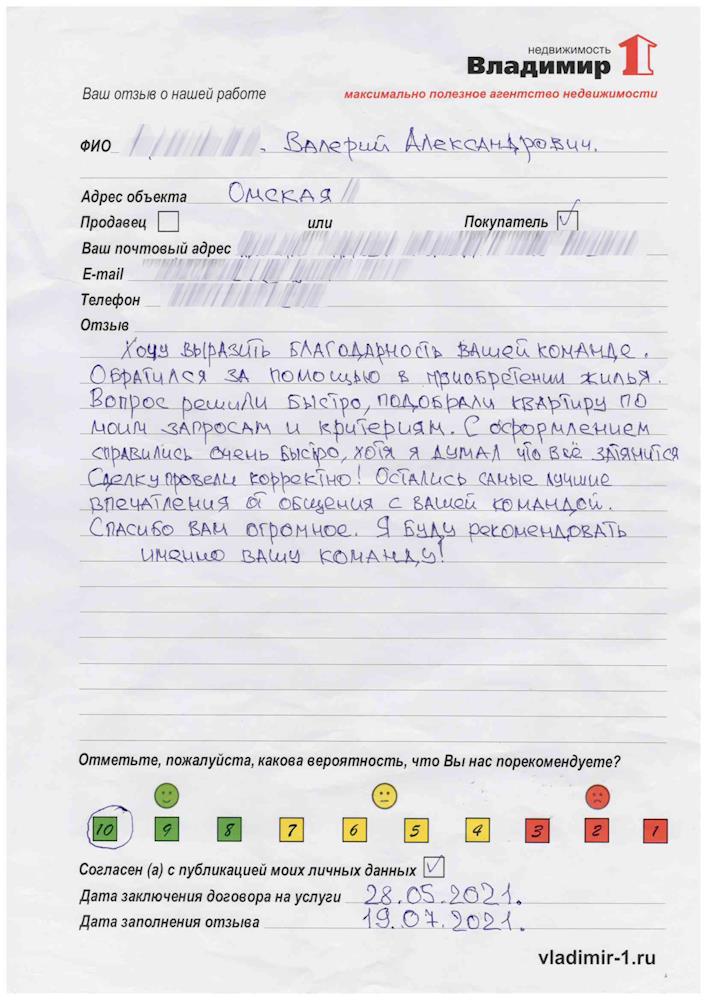 недвижимость
Владимир 1
Ваш отзыв о нашей работе
максимально полезное агентство недвижимости
ФИО . Валерий Александрович.
Адрес объекта Омская
Продавец или Покупатель ✓
Ваш почтовый адрес
E-mail
Телефон
Отзыв
Хочу выразить благодарность вашей команде.
Обратился за помощью в приобретении жилья.
Вопрос решили быстро, подобрали квартиру по
моим запросам и критериям. С оформлением
справились очень быстро, хотя я думал что всё затянится
Сделку провели корректно! Остались самые лучшие
впечатления от общения с вашей командой.
Спасибо вам огромное. Я буду рекомендовать
именно вашу команду!
Отметьте, пожалуйста, какова вероятность, что Вы нас порекомендуете?
10 9 8 7 6 5 4 3 2 1
Согласен (а) с публикацией моих личных данных ✓
Дата заключения договора на услуги 28.05.2021.
Дата заполнения отзыва 19.07.2021.
vladimir-1.ru